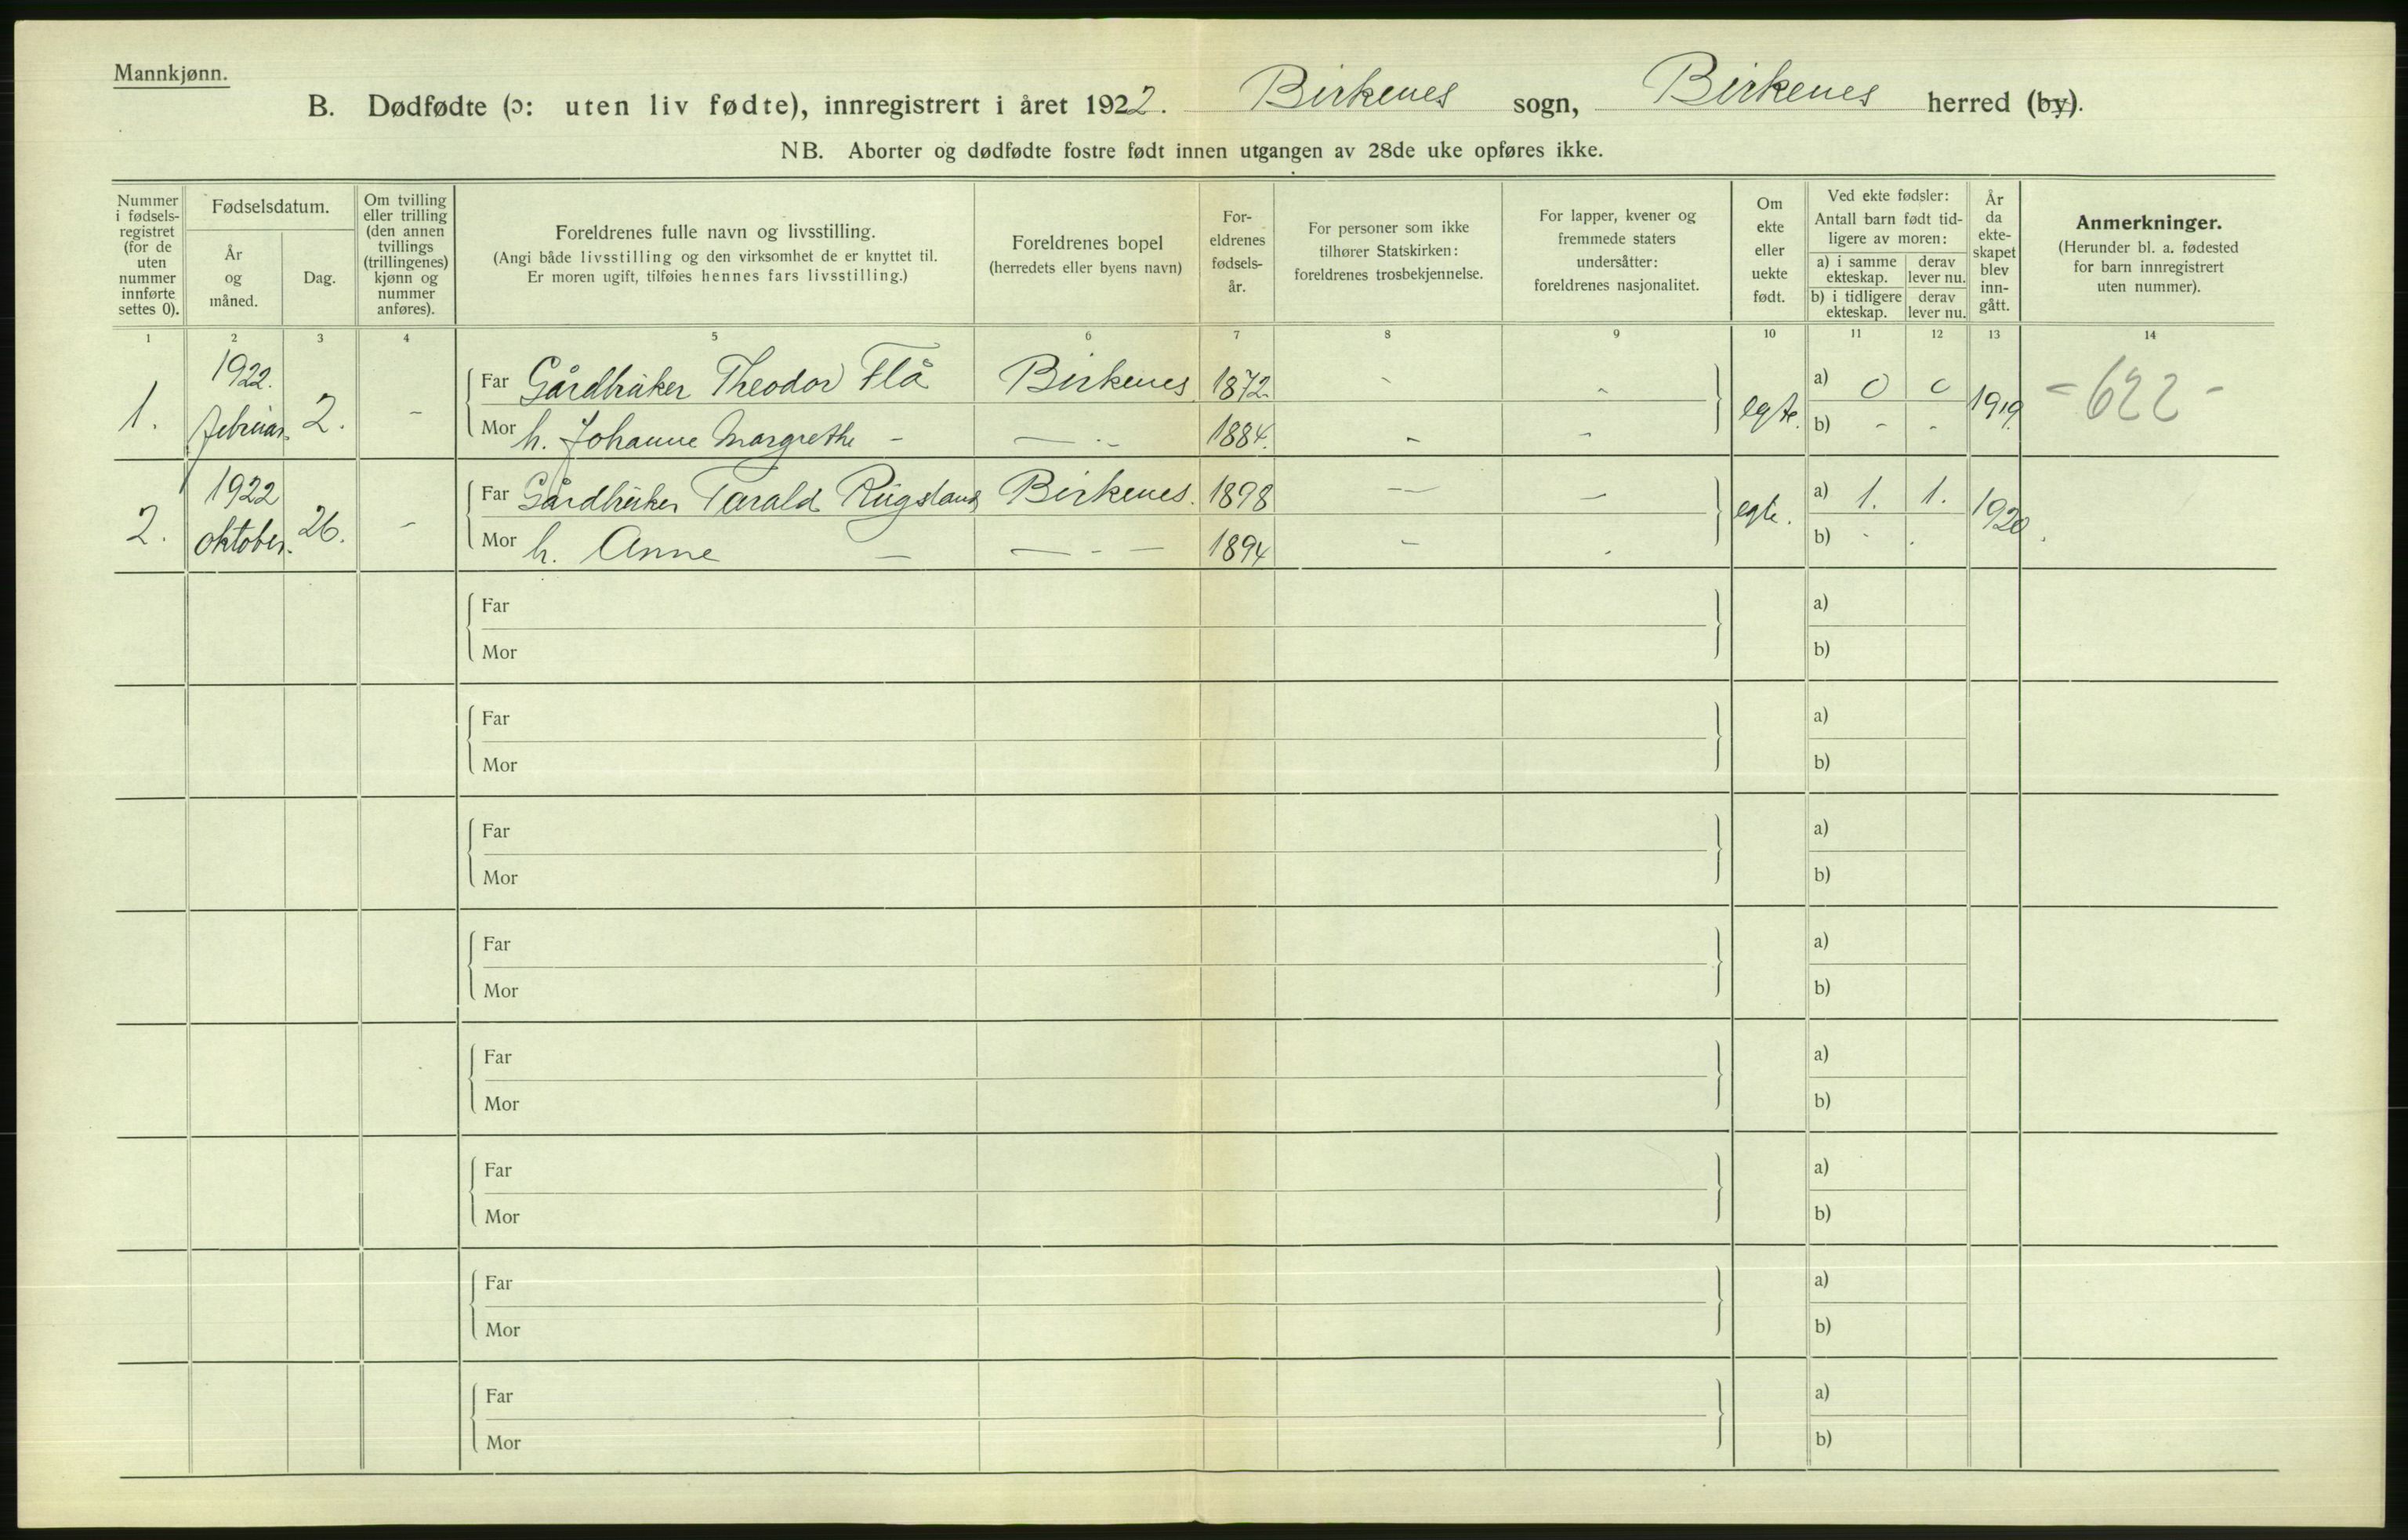 Mannkjønn.
B. Dødfødte (ɔ: uten liv fødte), innregistrert i året 1922. Birkenes sogn, Birkenes herred (by).
NB. Aborter og dødfødte fostre født innen utgangen av 28de uke opføres ikke.
Nummer i fødselsregistret (for de uten nummer innførte settes 0).
Fødselsdatum.
År og måned.
Dag.
Om tvilling eller trilling (den annen tvillings (trillingenes) kjønn og nummer anføres).
Foreldrenes fulle navn og livsstilling.
(Angi både livsstilling og den virksomhet de er knyttet til.
Er moren ugift, tilføies hennes fars livsstilling.)
Foreldrenes bopel
(herredets eller byens navn)
Foreldrenes fødselsår.
For personer som ikke tilhører Statskirken: foreldrenes trosbekjennelse.
For lapper, kvener og fremmede staters undersåtter: foreldrenes nasjonalitet.
Om ekte eller uekte født.
Ved ekte fødsler:
Antall barn født tidligere av moren:
a) i samme ekteskap. derav lever nu.
b) i tidligere ekteskap. derav lever nu.
År da ekteskapet blev inngått.
Anmerkninger.
(Herunder bl. a. fødested for barn innregistrert uten nummer).
1 2 3 4 5 6 7 8 9 10 11 12 13 14
1. 1922. februar. 2. - Far Gårdbruker Theodor Flå Birkenes 1872. - - egte. a) 0 0 1919. = 622 -
Mor h. Johanne Margrethe - — - - 1884. - - b) - -
2. 1922 oktober. 26. - Far Gårdbruker Tarald Rugsland Birkenes. 1898 — — egte. a) 1. 1. 1920.
Mor h. Anne — — - — 1894 - - b) - -
Far a)
Mor b)
Far a)
Mor b)
Far a)
Mor b)
Far a)
Mor b)
Far a)
Mor b)
Far a)
Mor b)
Far a)
Mor b)
Far a)
Mor b)